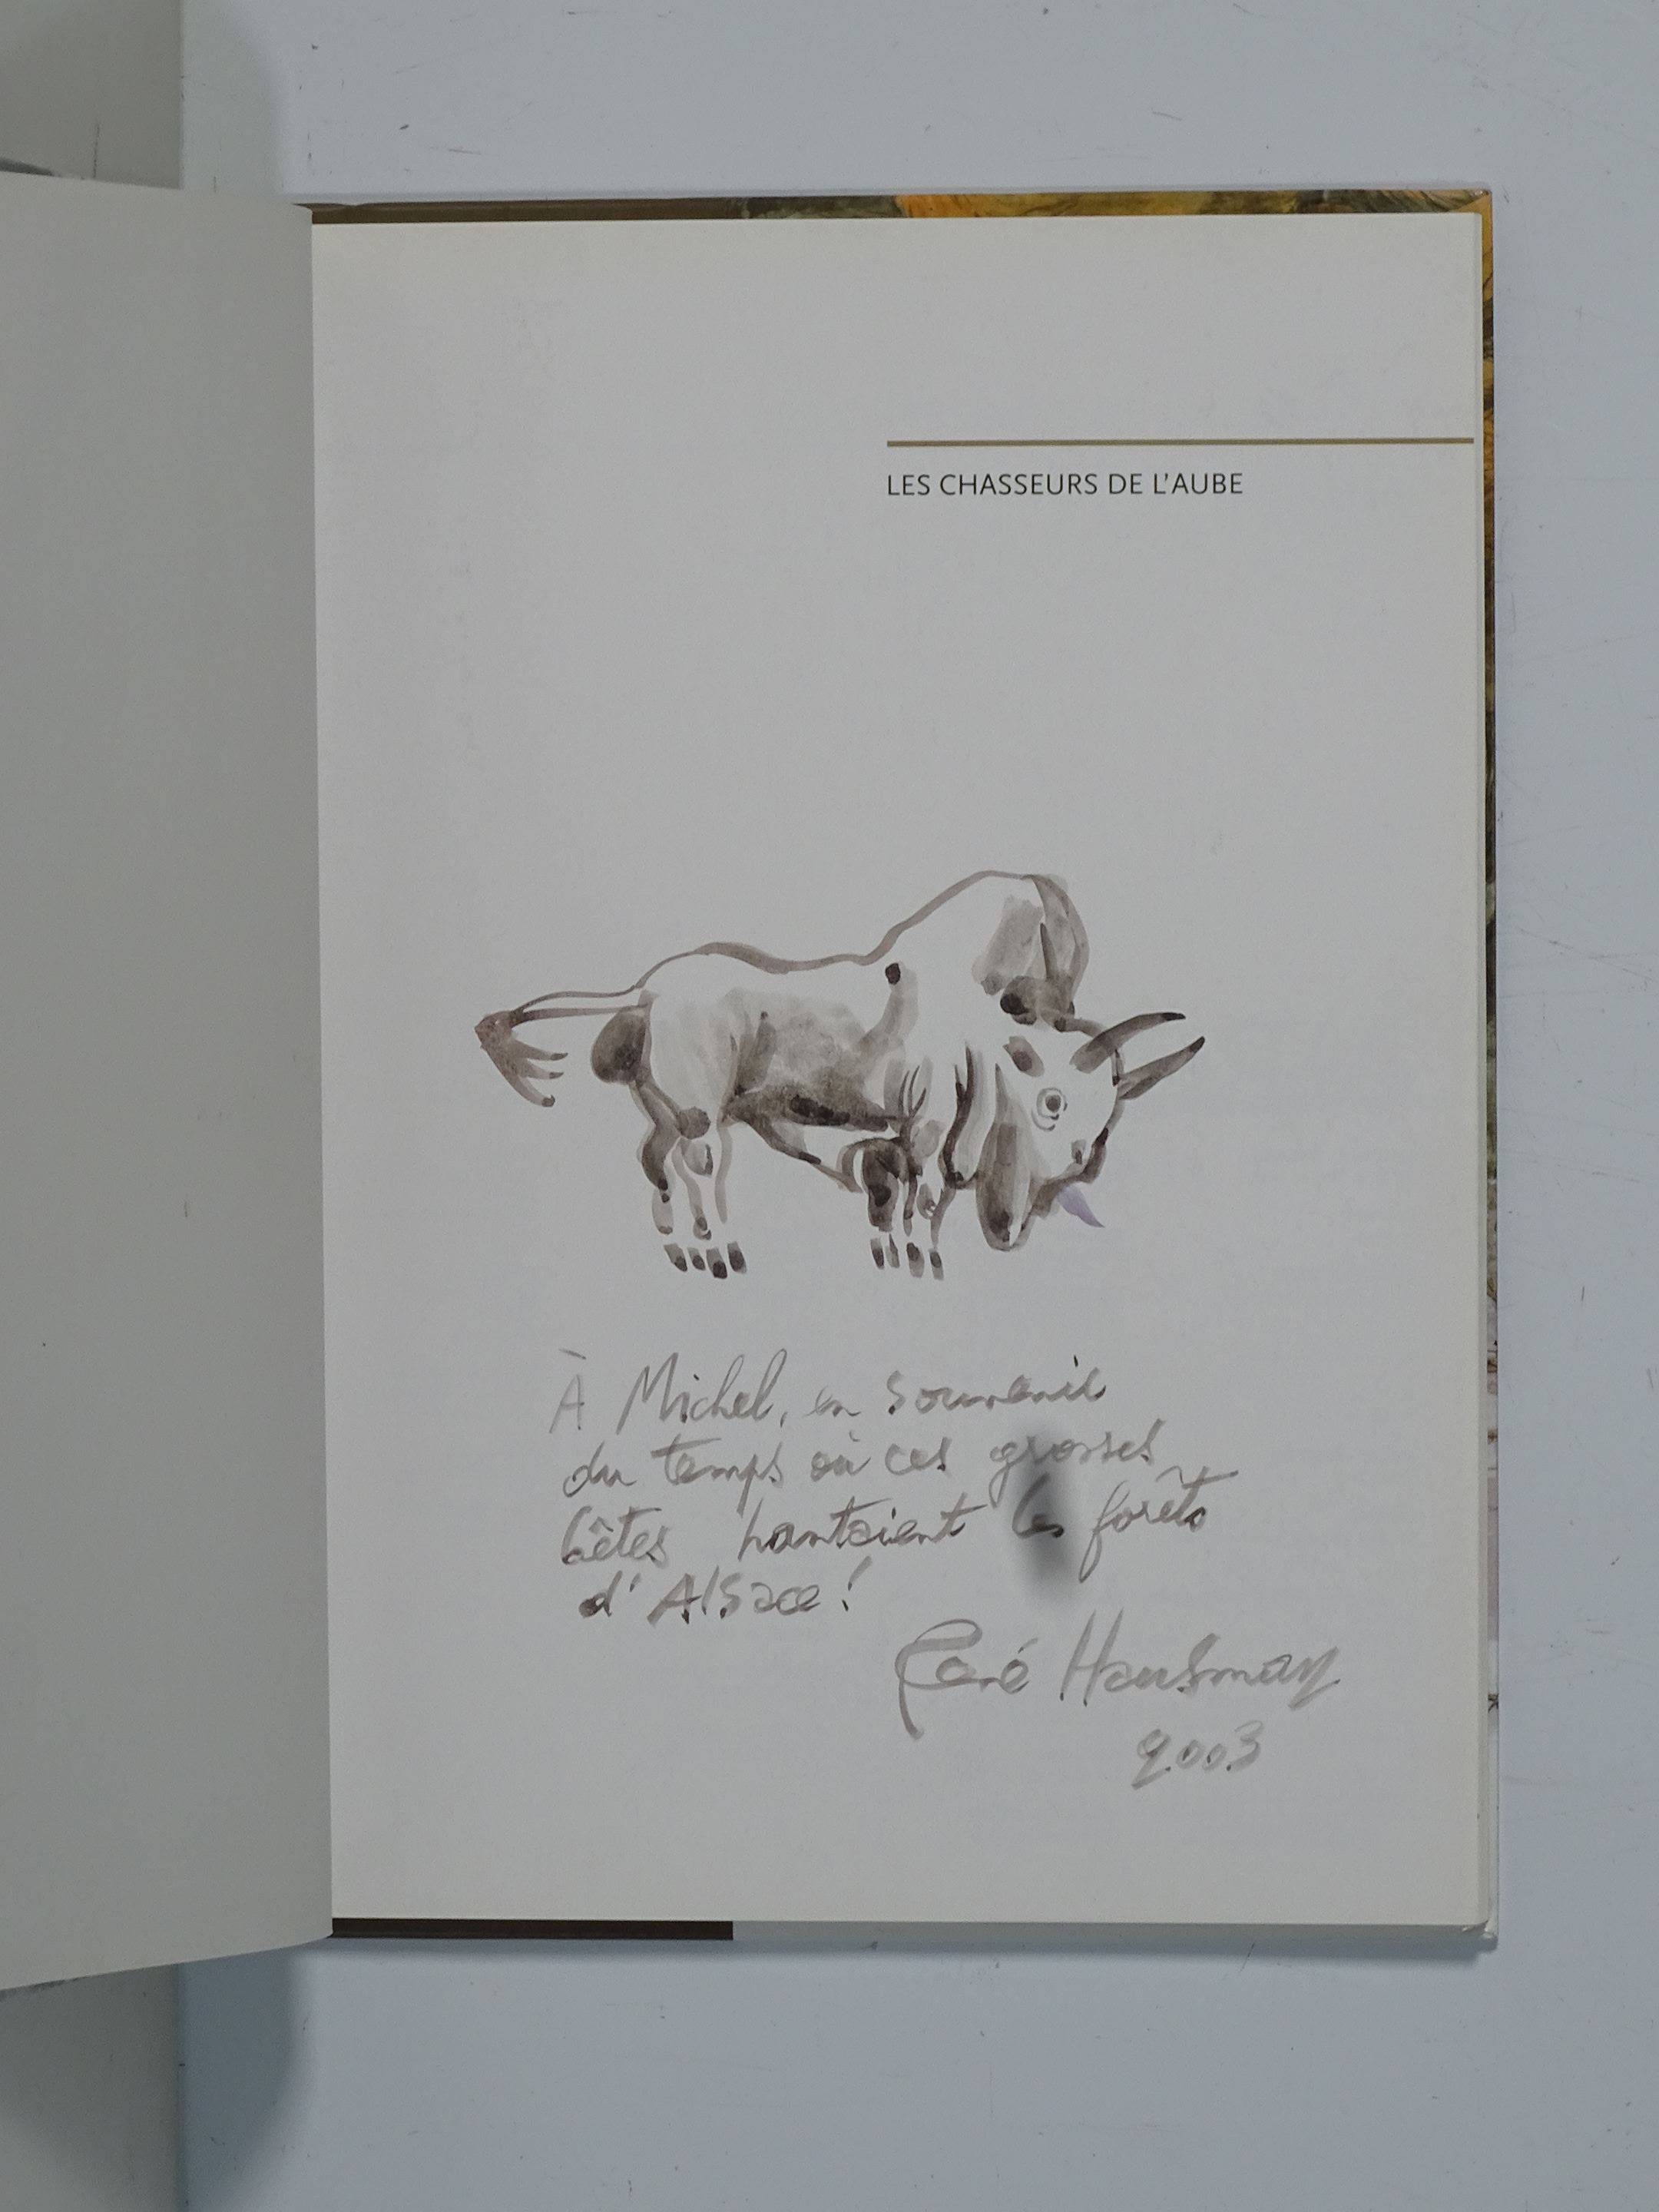 LES CHASSEURS DE L'AUBE
À Michel, en souvenir
du temps où ces grosses
bêtes hantaient les forêts
d'Alsace !
René Hausman
2003